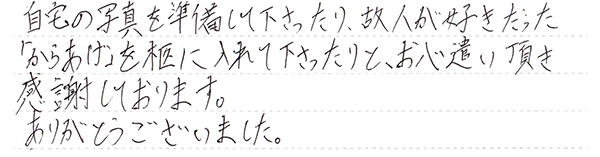 自宅の写真を準備して下さったり、故人が好きだった
「からあげ」を柩に入れて下さったりと、お心遣い頂き
感謝しております。
ありがとうございました。